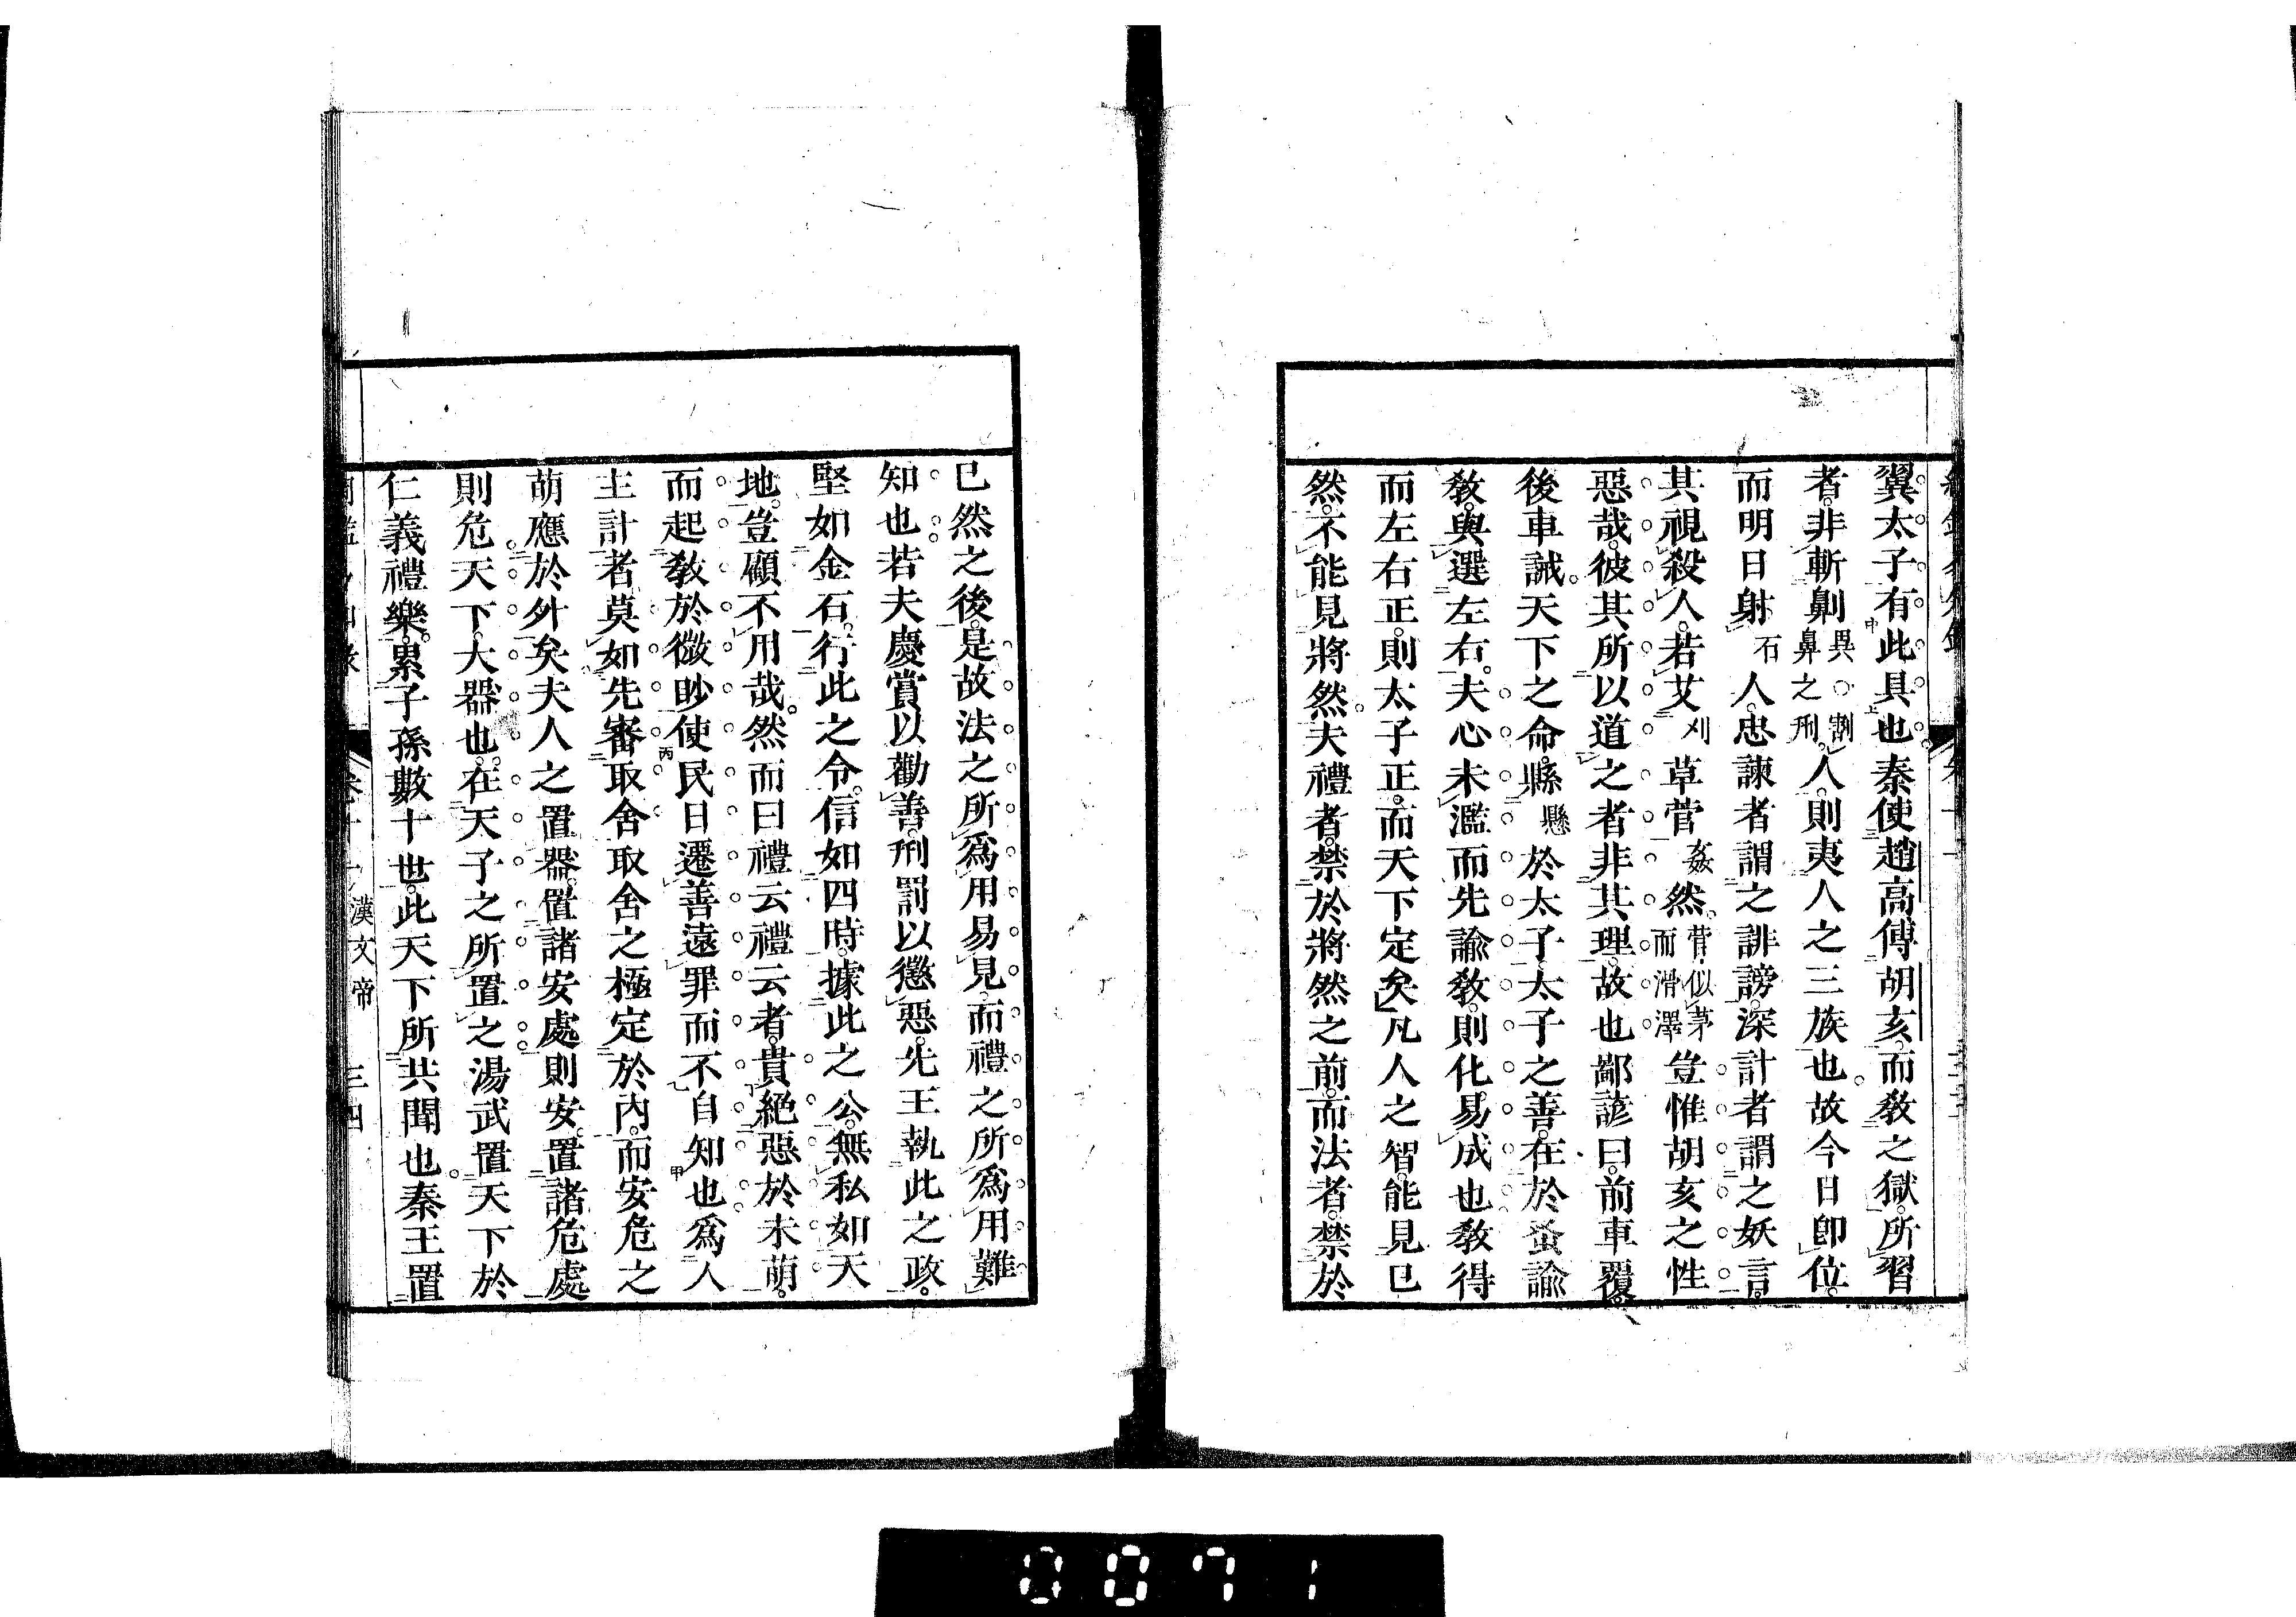 翼太子有此具也秦使趙高傅胡亥而教之獄所習
者非斬劓異○割鼻之刑人則夷人之三族也故今日卽位
而明日射石人忠諫者謂之誹謗深計者謂之妖言
其視殺人若艾刈草菅姦然菅似茅而滑澤豈惟胡亥之性
惡哉彼其所以道之者非其理故也鄙諺曰前車覆
後車誡天下之命縣懸於太子太子之善在於蚤諭
教與選左右夫心未濫而先諭教則化易成也教得
而左右正則太子正而天下定矣凡人之智能見已
然不能見將然夫禮者禁於將然之前而法者禁於
已然之後是故法之所爲用易見而禮之所爲用難
知也若夫慶賞以勸善刑罰以懲惡先王執此之政
堅如金石行此之令信如四時據此之公無私如天
地豈顧不用哉然而曰禮云禮云者貴絕惡於未萌
而起教於微眇使民日遷善遠罪而不自知也爲人
主計者莫如先審取舍取舍之極定於內而安危之
萌應於外矣夫人之置器置諸安處則安置諸危處
則危天下大器也在天子之所置之湯武置天下於
仁義禮樂累子孫數十世此天下所共聞也秦王置
漢文帝 三四
0071